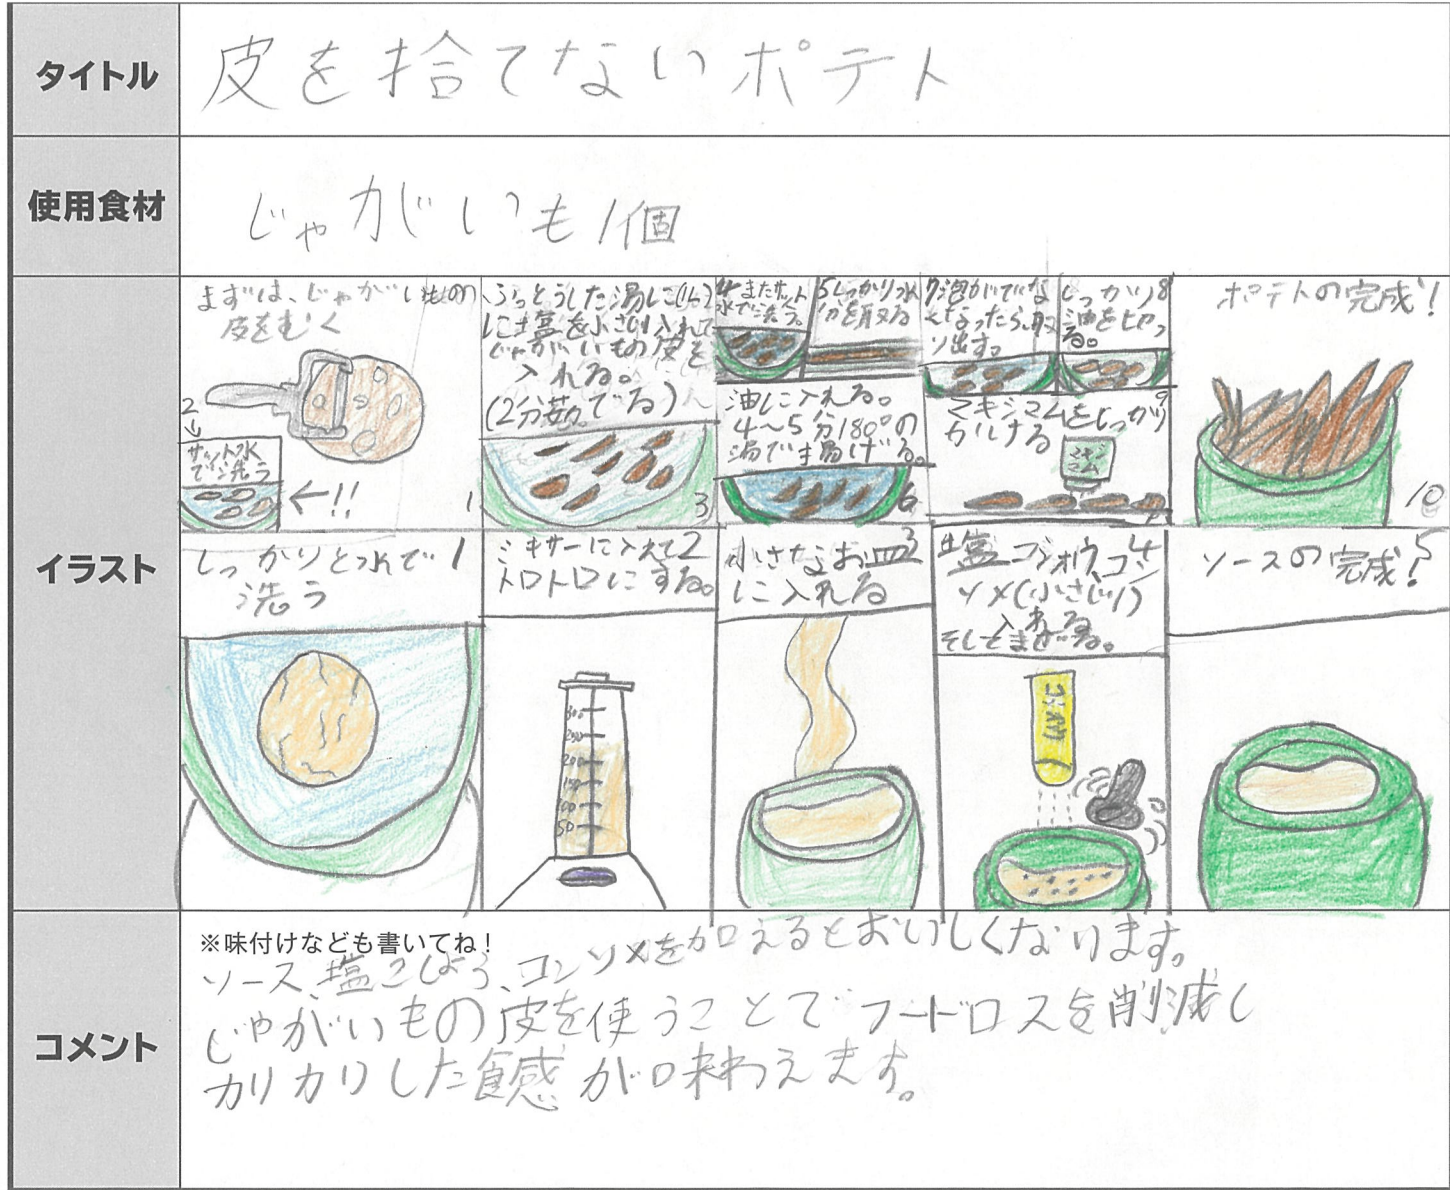 タイトル
皮を捨てないポテト
使用食材
じゃがいも1個
イラスト
まずは、じゃがいもの
皮をむく
1
2
サット水
で洗う
←!!
ふっとうした湯に(1L)
に塩を小さじ1入れて
じゃがいもの皮を
入れる。
(2分茹でる)
3
4またサット
水で洗う。
5しっかり水
分を取る
油に入れる。
4〜5分180°の
湯で揚げる。
6
7泡がでな
くなったら取
り出す。
しっかり8
油をとやっ
る。
マキシマムをしっかり9
かける
マキシ
マム
ポテトの完成!
10
しっかりと水で1
洗う
ミキサーに入れて2
トロトロにする。
300
250
200
150
100
50
小さなお皿3
に入れる
塩コショウ、コン4
ソメ(小さじ1)
入れる
そしてまぜる。
ソースの完成!5
コメント
※味付けなども書いてね!
ソース、塩こしょう、コンソメを加えるとおいしくなります。
じゃがいもの皮を使うことでフードロスを削減し
カリカリした食感が味わえます。